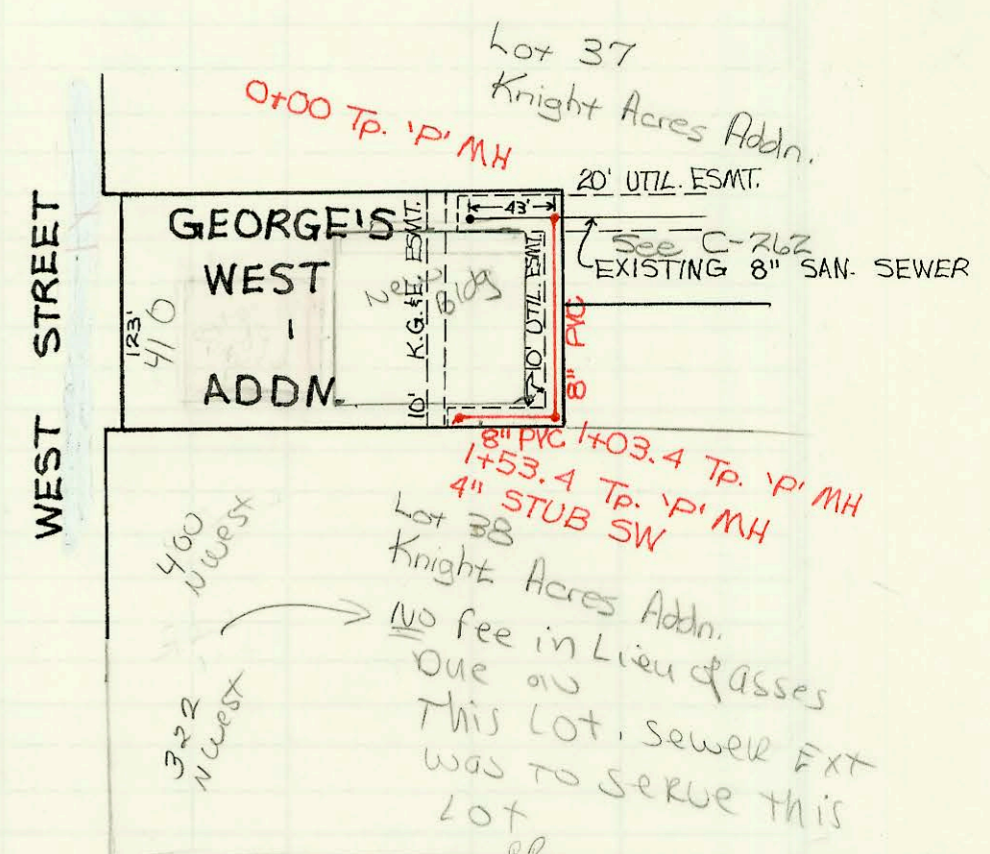 Lot 37
Knight Acres Addn.
0+00 Tp. 'P' MH
20' UTIL. ESMT.
43'
See C-262
EXISTING 8" SAN. SEWER
GEORGE'S
WEST
-
ADDN.
WEST STREET
123'
410
10' K.G.&E. ESMT.
New Bldg
10' UTIL. ESMT.
8" PVC
8" PVC 1+03.4 Tp. 'P' MH
1+53.4 Tp. 'P' MH
4" STUB SW
Lot 38
Knight Acres Addn.
400
N West
322
N West
NO fee in Lieu of asses
Due on
This Lot. Sewer Ext
was to serve this
Lot